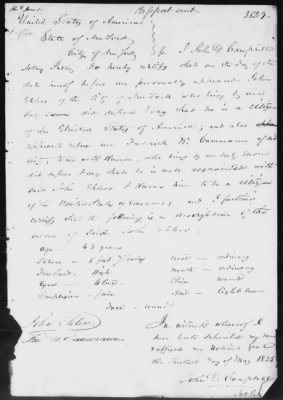 Passport sent
3624
United States of America
State of New York
City of New York
I John D. Campbell
Notary Public do hereby certify that on the day of the
date hereof before me personally appeared John
Ehlers of the City of New York who being by me
day sworn did depose & say that he is a citizen
of the United States of America; and also
appeared before me Frederick W. Cammann of said
City, to me well known, who being by me duly sworn
did depose & say that he is well acquainted with
said John Ehlers & knows him to be a citizen
of the United States of America; and I further
certify that the following is a description of the
person of said John Ehlers.
Age — 43 years
Stature — 5 feet 7 inches
Nose — ordinary
Forehead — High
Mouth — ordinary
Eyes — Blue
Chin — round
Complexion — fair
Hair — light brown
Face — round
John Ehlers
In witness whereof I
have hereto subscribed my name
affixed my Notarial Seal
the day of May 1835
John D. Campbell
Not Pub